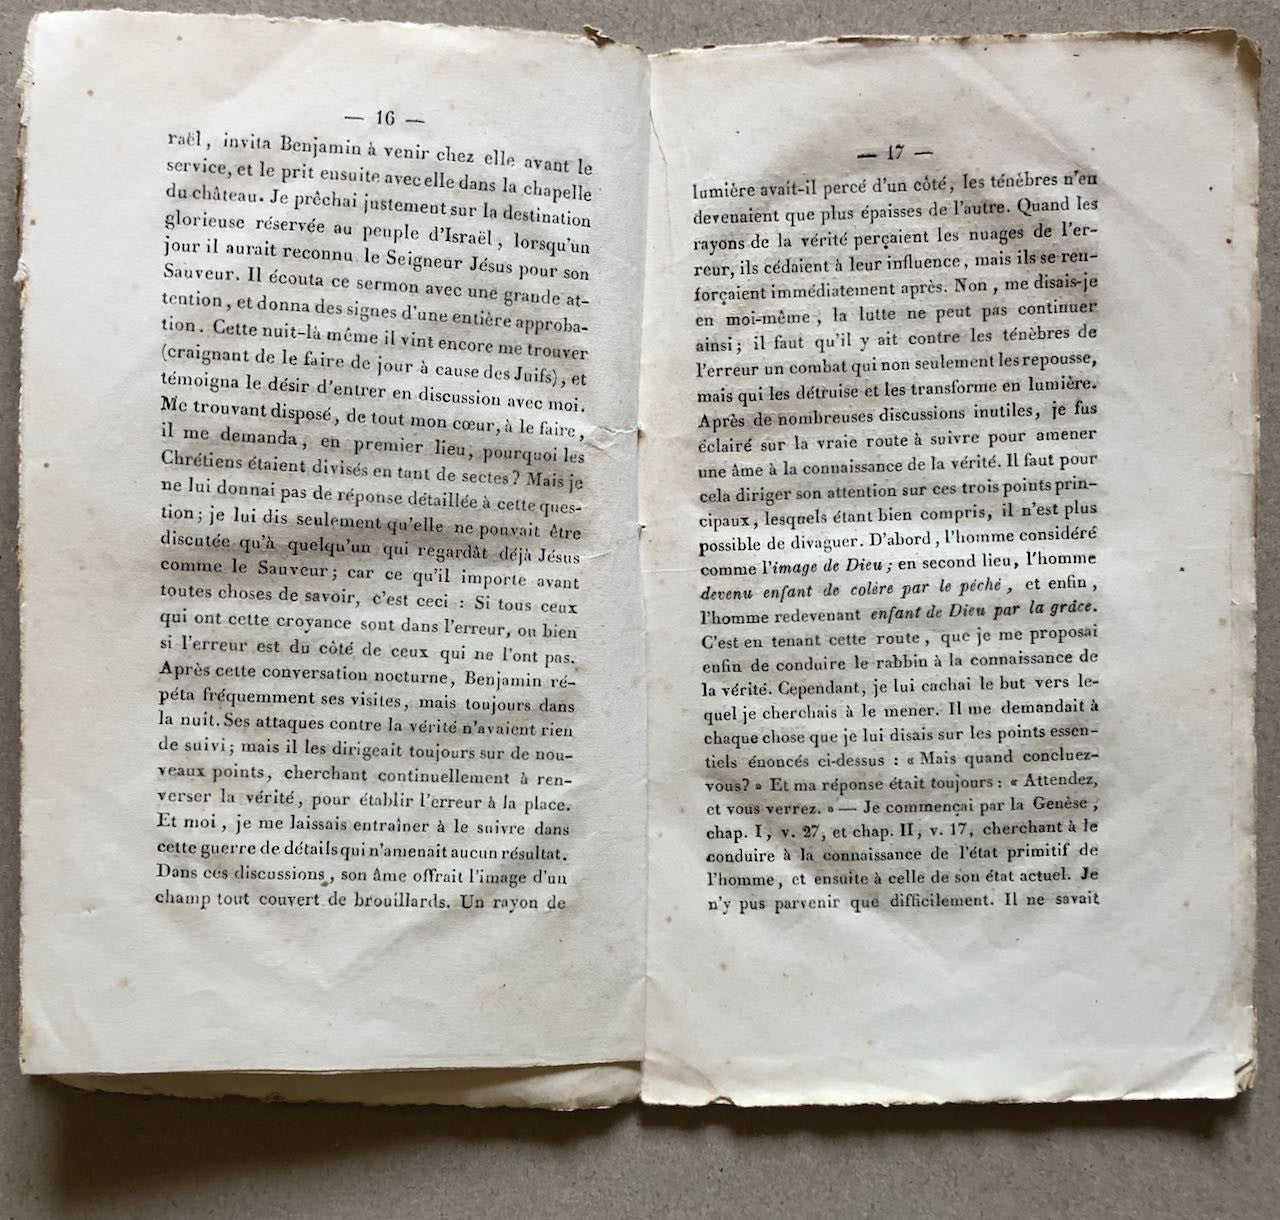 — 16 —
raël, invita Benjamin à venir chez elle avant le
service, et le prit ensuite avec elle dans la chapelle
du château. Je prêchai justement sur la destination
glorieuse réservée au peuple d'Israël, lorsqu'un
jour il aurait reconnu le Seigneur Jésus pour son
Sauveur. Il écouta ce sermon avec une grande at-
tention, et donna des signes d'une entière approba-
tion. Cette nuit-là même il vint encore me trouver
(craignant de le faire de jour à cause des Juifs), et
témoigna le désir d'entrer en discussion avec moi.
Me trouvant disposé, de tout mon cœur, à le faire,
il me demanda, en premier lieu, pourquoi les
Chrétiens étaient divisés en tant de sectes? Mais je
ne lui donnai pas de réponse détaillée à cette ques-
tion; je lui dis seulement qu'elle ne pouvait être
discutée qu'à quelqu'un qui regardât déjà Jésus
comme le Sauveur; car ce qu'il importe avant
toutes choses de savoir, c'est ceci : Si tous ceux
qui ont cette croyance sont dans l'erreur, ou bien
si l'erreur est du côté de ceux qui ne l'ont pas.
Après cette conversation nocturne, Benjamin ré-
péta fréquemment ses visites, mais toujours dans
la nuit. Ses attaques contre la vérité n'avaient rien
de suivi; mais il les dirigeait toujours sur de nou-
veaux points, cherchant continuellement à ren-
verser la vérité, pour établir l'erreur à la place.
Et moi, je me laissais entraîner à le suivre dans
cette guerre de détails qui n'amenait aucun résultat.
Dans ces discussions, son âme offrait l'image d'un
champ tout couvert de brouillards. Un rayon de
— 17 —
lumière avait-il percé d'un côté, les ténèbres n'en
devenaient que plus épaisses de l'autre. Quand les
rayons de la vérité perçaient les nuages de l'er-
reur, ils cédaient à leur influence, mais ils se ren-
forçaient immédiatement après. Non, me disais-je
en moi-même, la lutte ne peut pas continuer
ainsi; il faut qu'il y ait contre les ténèbres de
l'erreur un combat qui non seulement les repousse,
mais qui les détruise et les transforme en lumière.
Après de nombreuses discussions inutiles, je fus
éclairé sur la vraie route à suivre pour amener
une âme à la connaissance de la vérité. Il faut pour
cela diriger son attention sur ces trois points prin-
cipaux, lesquels étant bien compris, il n'est plus
possible de divaguer. D'abord, l'homme considéré
comme l'image de Dieu; en second lieu, l'homme
devenu enfant de colère par le péché, et enfin,
l'homme redevenant enfant de Dieu par la grâce.
C'est en tenant cette route, que je me proposai
enfin de conduire le rabbin à la connaissance de
la vérité. Cependant, je lui cachai le but vers le-
quel je cherchais à le mener. Il me demandait à
chaque chose que je lui disais sur les points essen-
tiels énoncés ci-dessus : « Mais quand concluez-
vous? » Et ma réponse était toujours : « Attendez,
et vous verrez. » — Je commençai par la Genèse,
chap. I, v. 27, et chap. II, v. 17, cherchant à le
conduire à la connaissance de l'état primitif de
l'homme, et ensuite à celle de son état actuel. Je
n'y pus parvenir que difficilement. Il ne savait